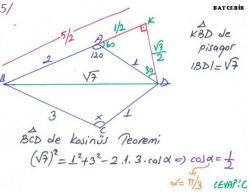 BATCEBİR
5/
5/2
1/2
K
A
60
120
√3/2
2
1
30
B
√7
D
3
1
x
C
△
KBD de
pisagor
|BD|=√7
△
BCD de Kosinüs Teoremi
(√7)² = 1²+3² - 2.1.3.cosα ⇒ cosα = 1/2
α = π/3 CEVAP:C